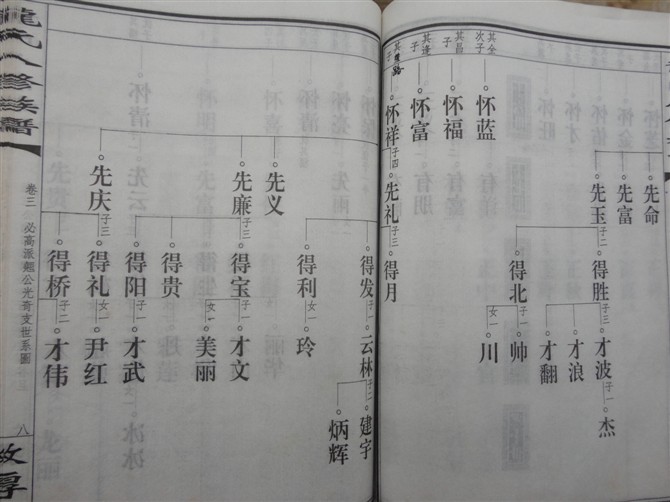 其全次子
其昌子
其逢子
怀蓝
怀福
怀富
怀祥 子四
先命
先富
先玉 子二
先礼 子三
得胜 子三
得北 子一 女一
得月
才波 子一
才浪
才翻
帅
川
杰
先义
先廉 子三
先庆 子三
得发 子一
得利 女一
得宝 子一 女一
得贵
得阳 子一
得礼 女一
得桥 子二
云林 子二
玲
才文
美丽
才武
尹红
才伟
建宇
炳辉
氏八修族譜
卷三
必高派
公光
支世系圖
八
敦厚